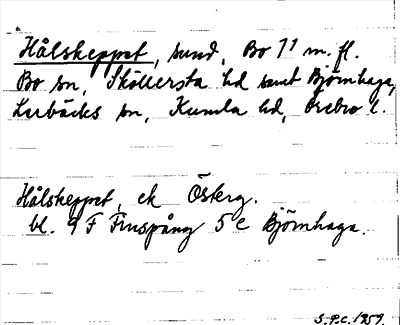 Hålskeppet, sund, Bo 1¹ m. fl.
Bo sn, Sköllersta hd samt Björnhaga,
Lerbäcks sn, Kumla hd, Örebro l.
Hålskeppet, ek Österg.
bl. 9 F Finspång 5 c Björnhaga.
S.P.C. 1959.